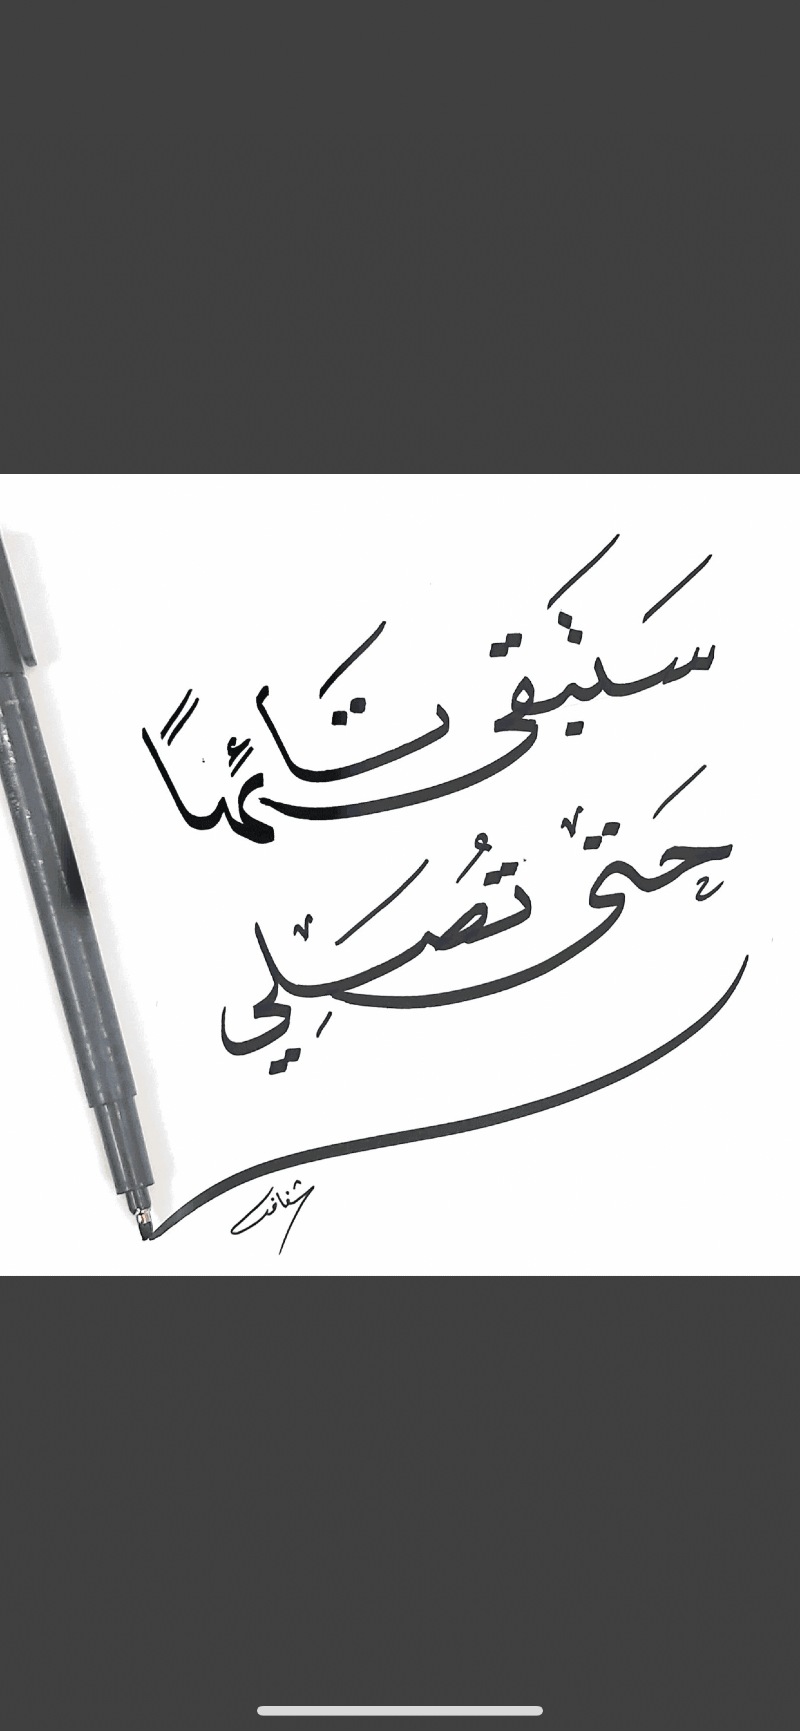 سَتَبقى تَائهًا
حَتّى تُصَلِّي